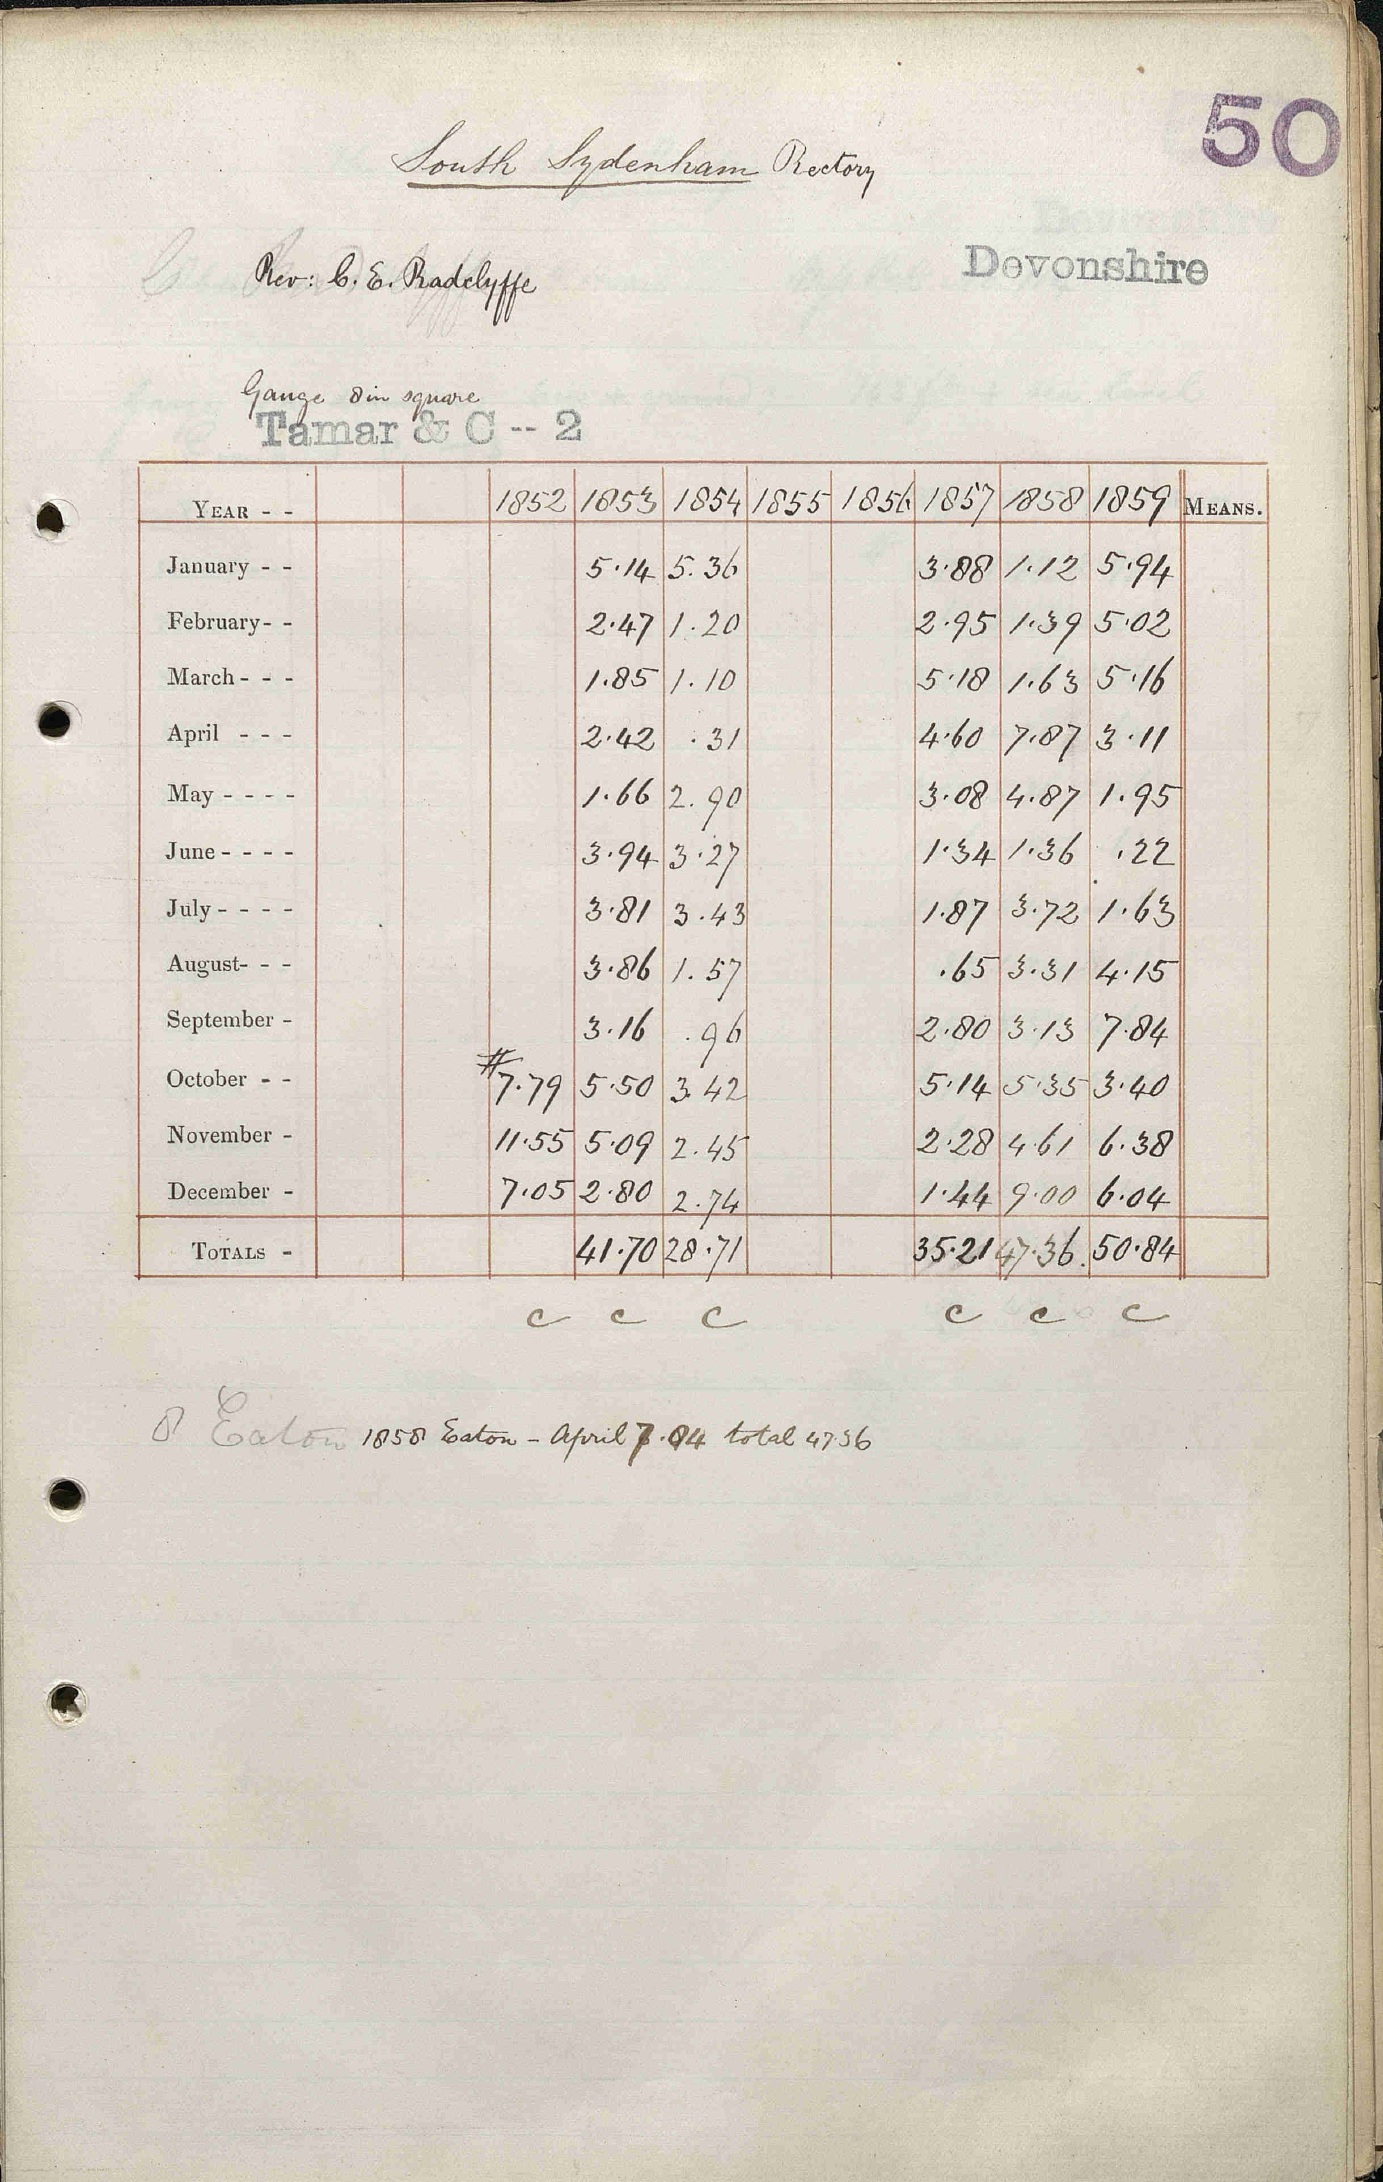 50
South Sydenham Rectory
Devonshire
Rev: C. E. Radclyffe
Gauge 8 in square
Tamar & C -- 2
YEAR - - 1852 1853 1854 1855 1856 1857 1858 1859 MEANS.
January - - 5.14 5.36 3.88 1.12 5.94
February- - 2.47 1.20 2.95 1.39 5.02
March- - - 1.85 1.10 5.18 1.63 5.16
April - - - 2.42 .31 4.60 7.87 3.11
May - - - - 1.66 2.90 3.08 4.87 1.95
June- - - - 3.94 3.27 1.34 1.36 .22
July- - - - 3.81 3.43 1.87 3.72 1.63
August- - - 3.86 1.57 .65 3.31 4.15
September - 3.16 .96 2.80 3.13 7.84
October - - #7.79 5.50 3.42 5.14 5.35 3.40
November - 11.55 5.09 2.45 2.28 4.61 6.38
December - 7.05 2.80 2.74 1.44 9.00 6.04
TOTALS - 41.70 28.71 35.21 47.36 50.84
c c c c c c
8 Eaton 1858 Eaton - April 7.84 total 47.36